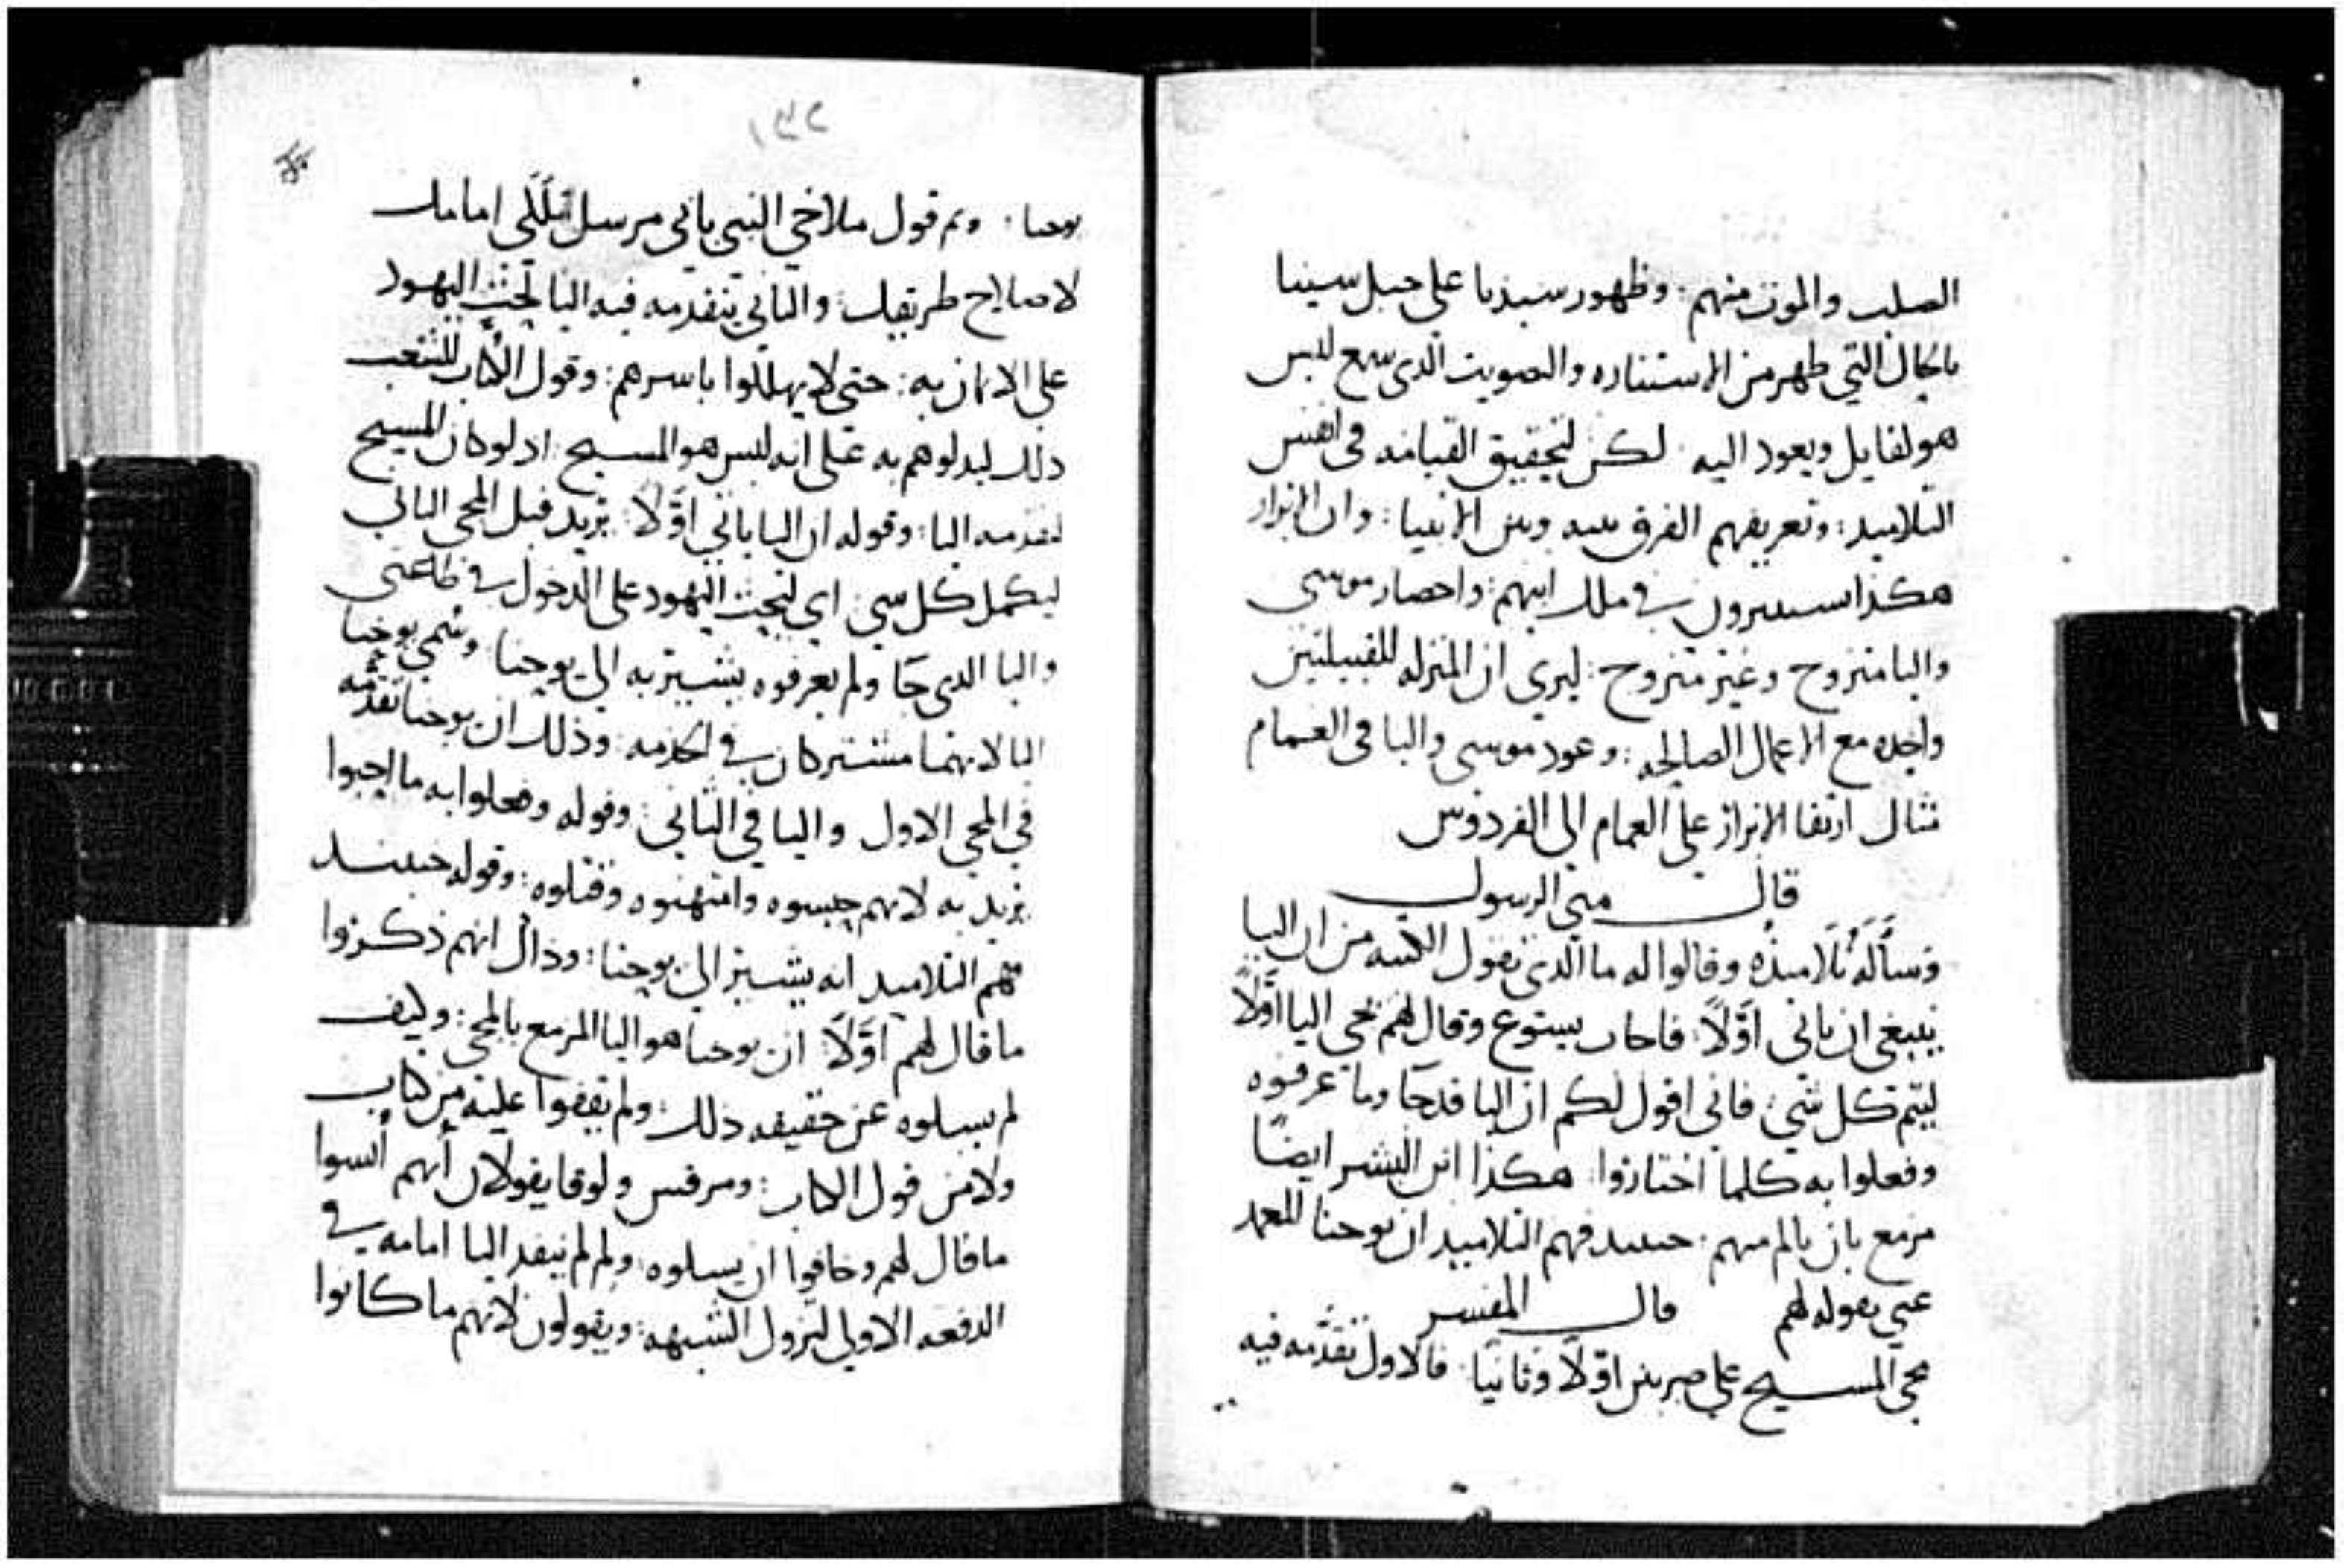 الصلب والموت منهم : وظهور سيدنا على جبل سينا
بالحال التي ظهر من الاستناره والصوت الذى سمع ليس
هو لقايل ويعود اليه . لكن لتحقيق القيامه فى انفس
التلاميد : وتعريفهم الفرق بينه وبين الانبيا : وان الابرار
هكذا سيسيرون في ملك ابيهم : واحضار موسى
واليا متزوح وغير متزوح : ليرى ان المنزله للقبيلتين
واحده مع الاعمال الصالحه : وعود موسى واليا فى الغمام
مثال ارتقا الابرار على الغمام الى الفردوس
قال متى الرسول
وسأله تلاميذه وقالوا له ما الدى تقول الكتبه من ان اليا
ينبغى ان ياتى اوّلاً : فاجاب يسوع وقال لهم يجى اليا اوّلاً
ليتم كل شي : فانى اقول لكم ان اليا قد جا وما عرفوه
وفعلوا به كلما اختاروا : هكذا ابن البشر ايضاً
مزمع بان يالم منهم : حينيد فهم التلاميد ان يوحنا المعمد
عنى بقوله لهم قال المفسر
مجى المسيح على ضربين اوّلاً وثانياً : فالاول تقدّمه فيه
١٣٢
يوحنا : وتم قول ملاخي النبي باني مرسل ملاكي امامك
لاصلاح طريقك : والثاني يتقدمه فيه اليا لحث اليهود
على الايمان به : حتى لا يهلكوا باسرهم : وقول الكتاب للشعب
ذلك ليدلوهم به على انه ليس هو المسيح : اد لو كان المسيح
لتقدمه اليا : وقوله ان اليا ياتي اوّلاً : يريد قبل المجى الثاني
ليكمل كل سي : اي ليحث اليهود على الدخول في طاعتى
واليا الدى جا ولم يعرفوه يشير به الى يوحنا : وسُمي يوحنا
اليا لانهما مشتركان في الخدمه : وذلك ان يوحنا تقدّمه
في المجى الاول واليا في الثاني : وقوله وفعلوا به ما احبوا
يريد به لانهم حبسوه وامتهنوه وقتلوه : وقوله حينيد
فهم التلاميد انه يشير الى يوحنا : وذاك انهم ذكروا
ما قال لهم اوّلاً ان يوحنا هو اليا المزمع بالمجى : وكيف
لم يسلوه عن حقيقه ذلك : ولم يقفوا عليه من كتاب
ولا من قول الكتاب : ومرقس ولوقا يقولان أنهم أنسوا
ما قال لهم وخافوا ان يسلوه : ولم لم ينفد اليا امامه في
الدفعه الاولى لتزول الشبهه : ويقولون لانهم ما كانوا